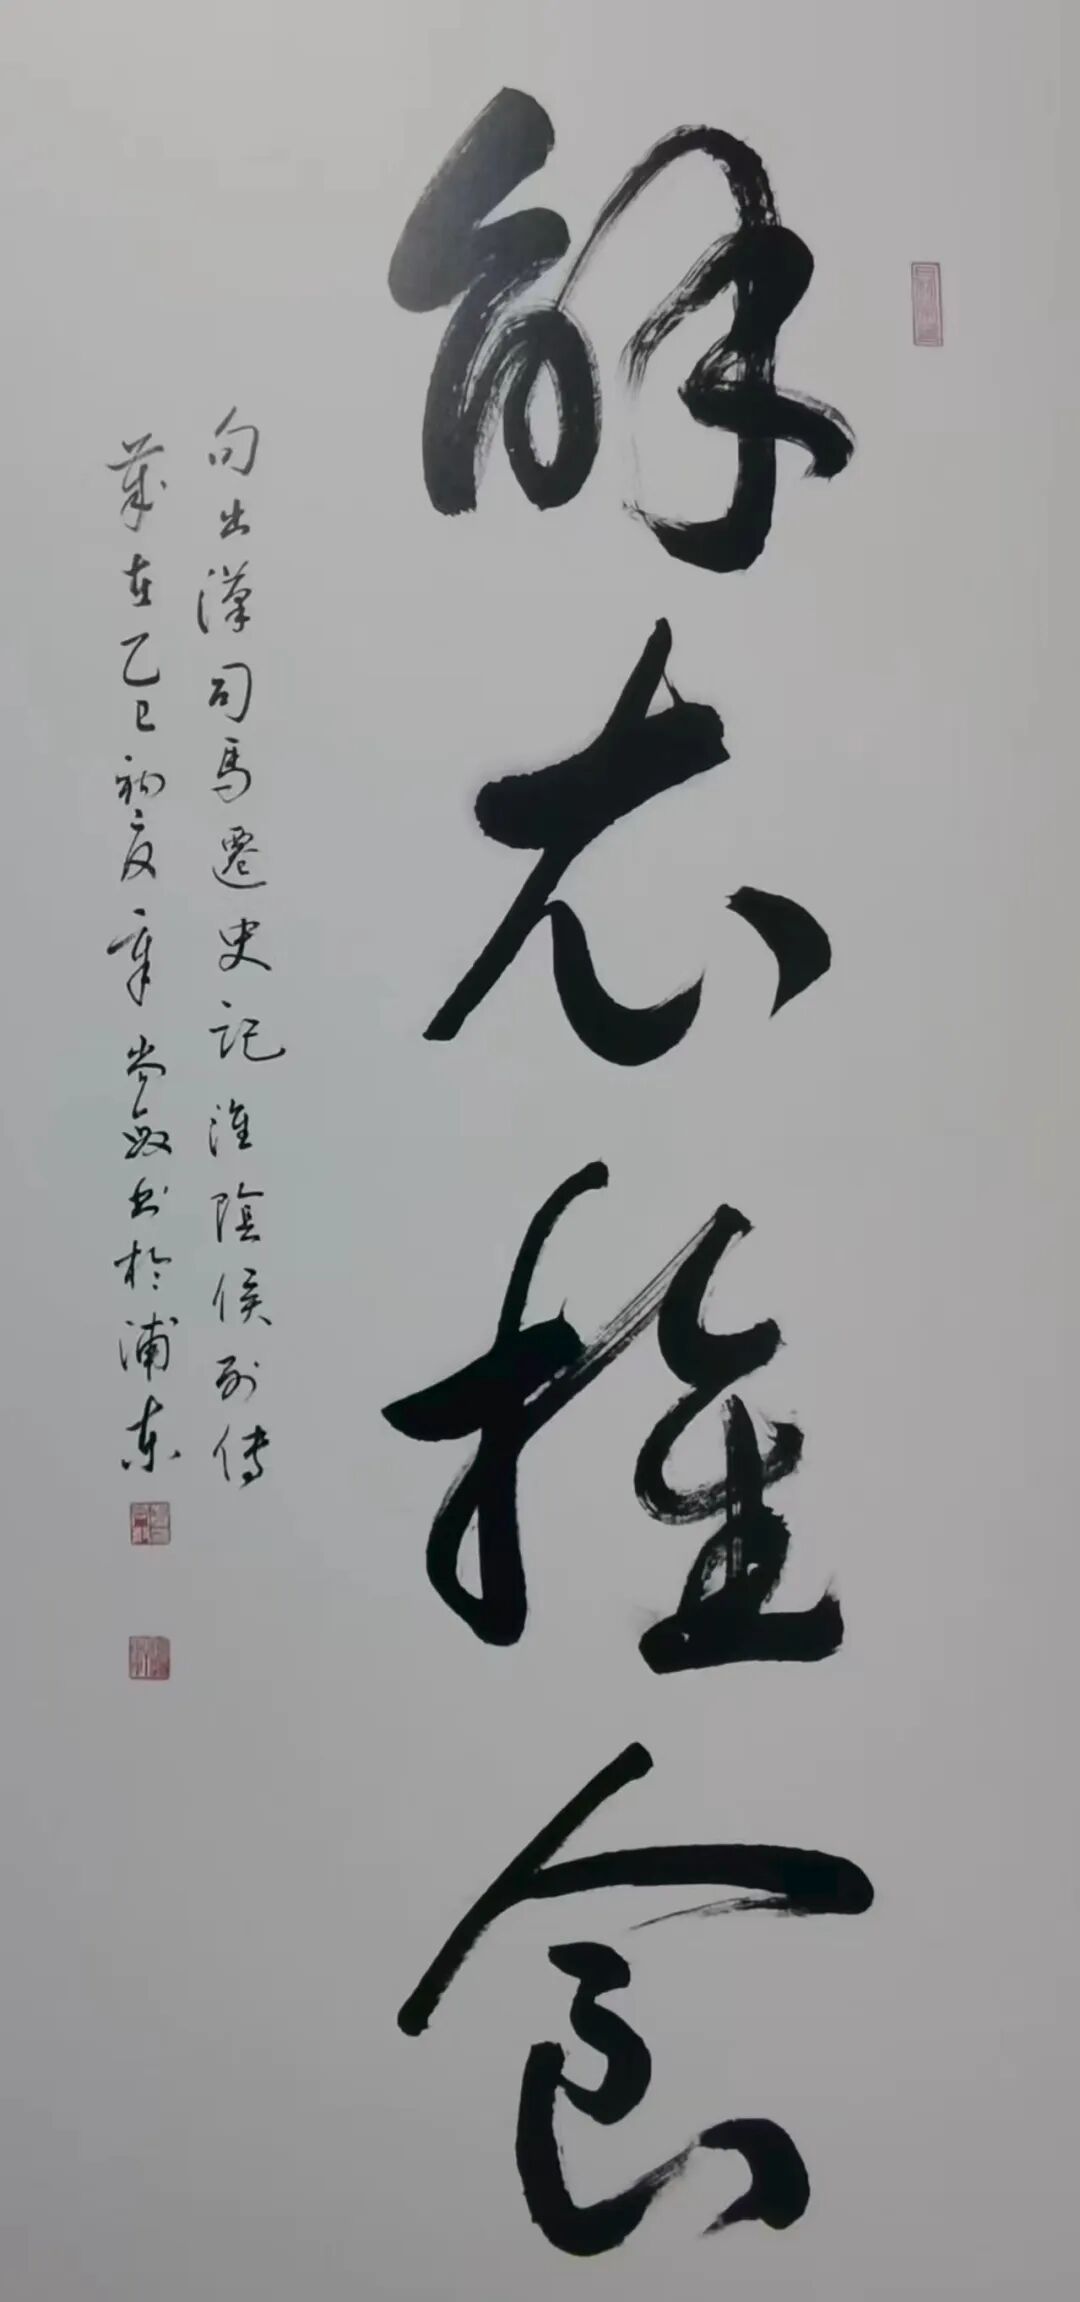 解衣推食
句出漢司馬遷史記淮陰侯列傳
歲在乙巳初夏章尚敏書於浦东